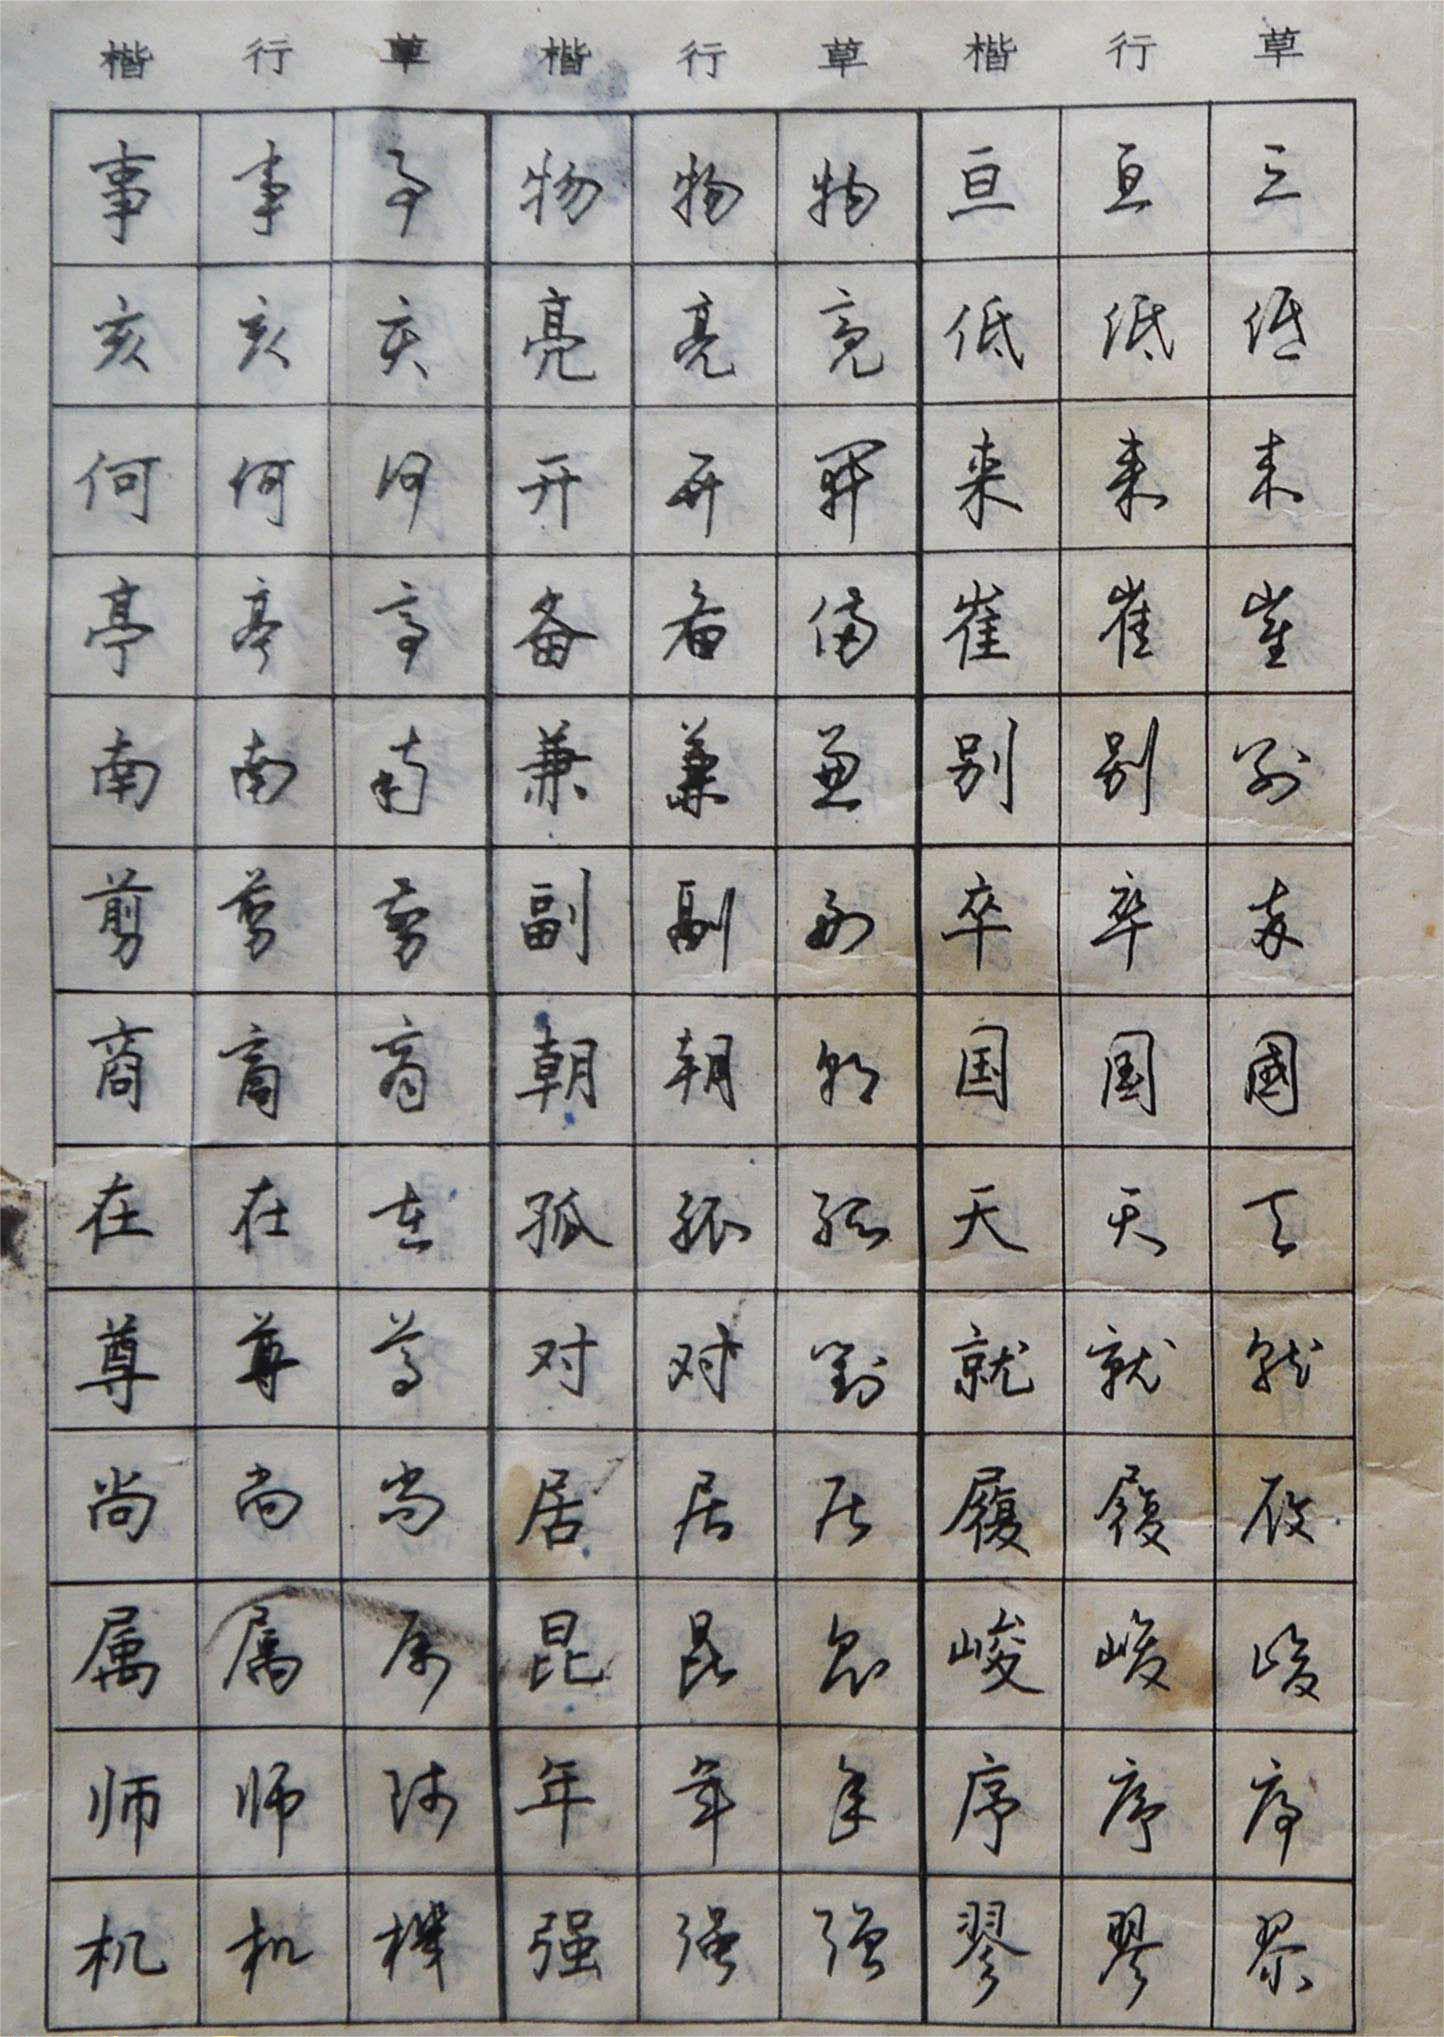 楷 行 草 楷 行 草 楷 行 草
事 事 事 物 物 物 亘 亘 亘
亥 亥 亥 亮 亮 亮 低 低 低
何 何 何 开 开 開 来 来 来
亭 亭 亭 备 备 備 崔 崔 崔
南 南 南 兼 兼 兼 别 别 别
剪 剪 剪 副 副 副 卒 卒 卒
商 商 商 朝 朝 朝 国 国 國
在 在 在 孤 孤 孤 天 天 天
尊 尊 尊 对 对 對 就 就 就
尚 尚 尚 居 居 居 履 履 履
属 属 属 昆 昆 昆 峻 峻 峻
师 师 师 年 年 年 序 序 序
机 机 機 强 强 强 翏 翏 翏